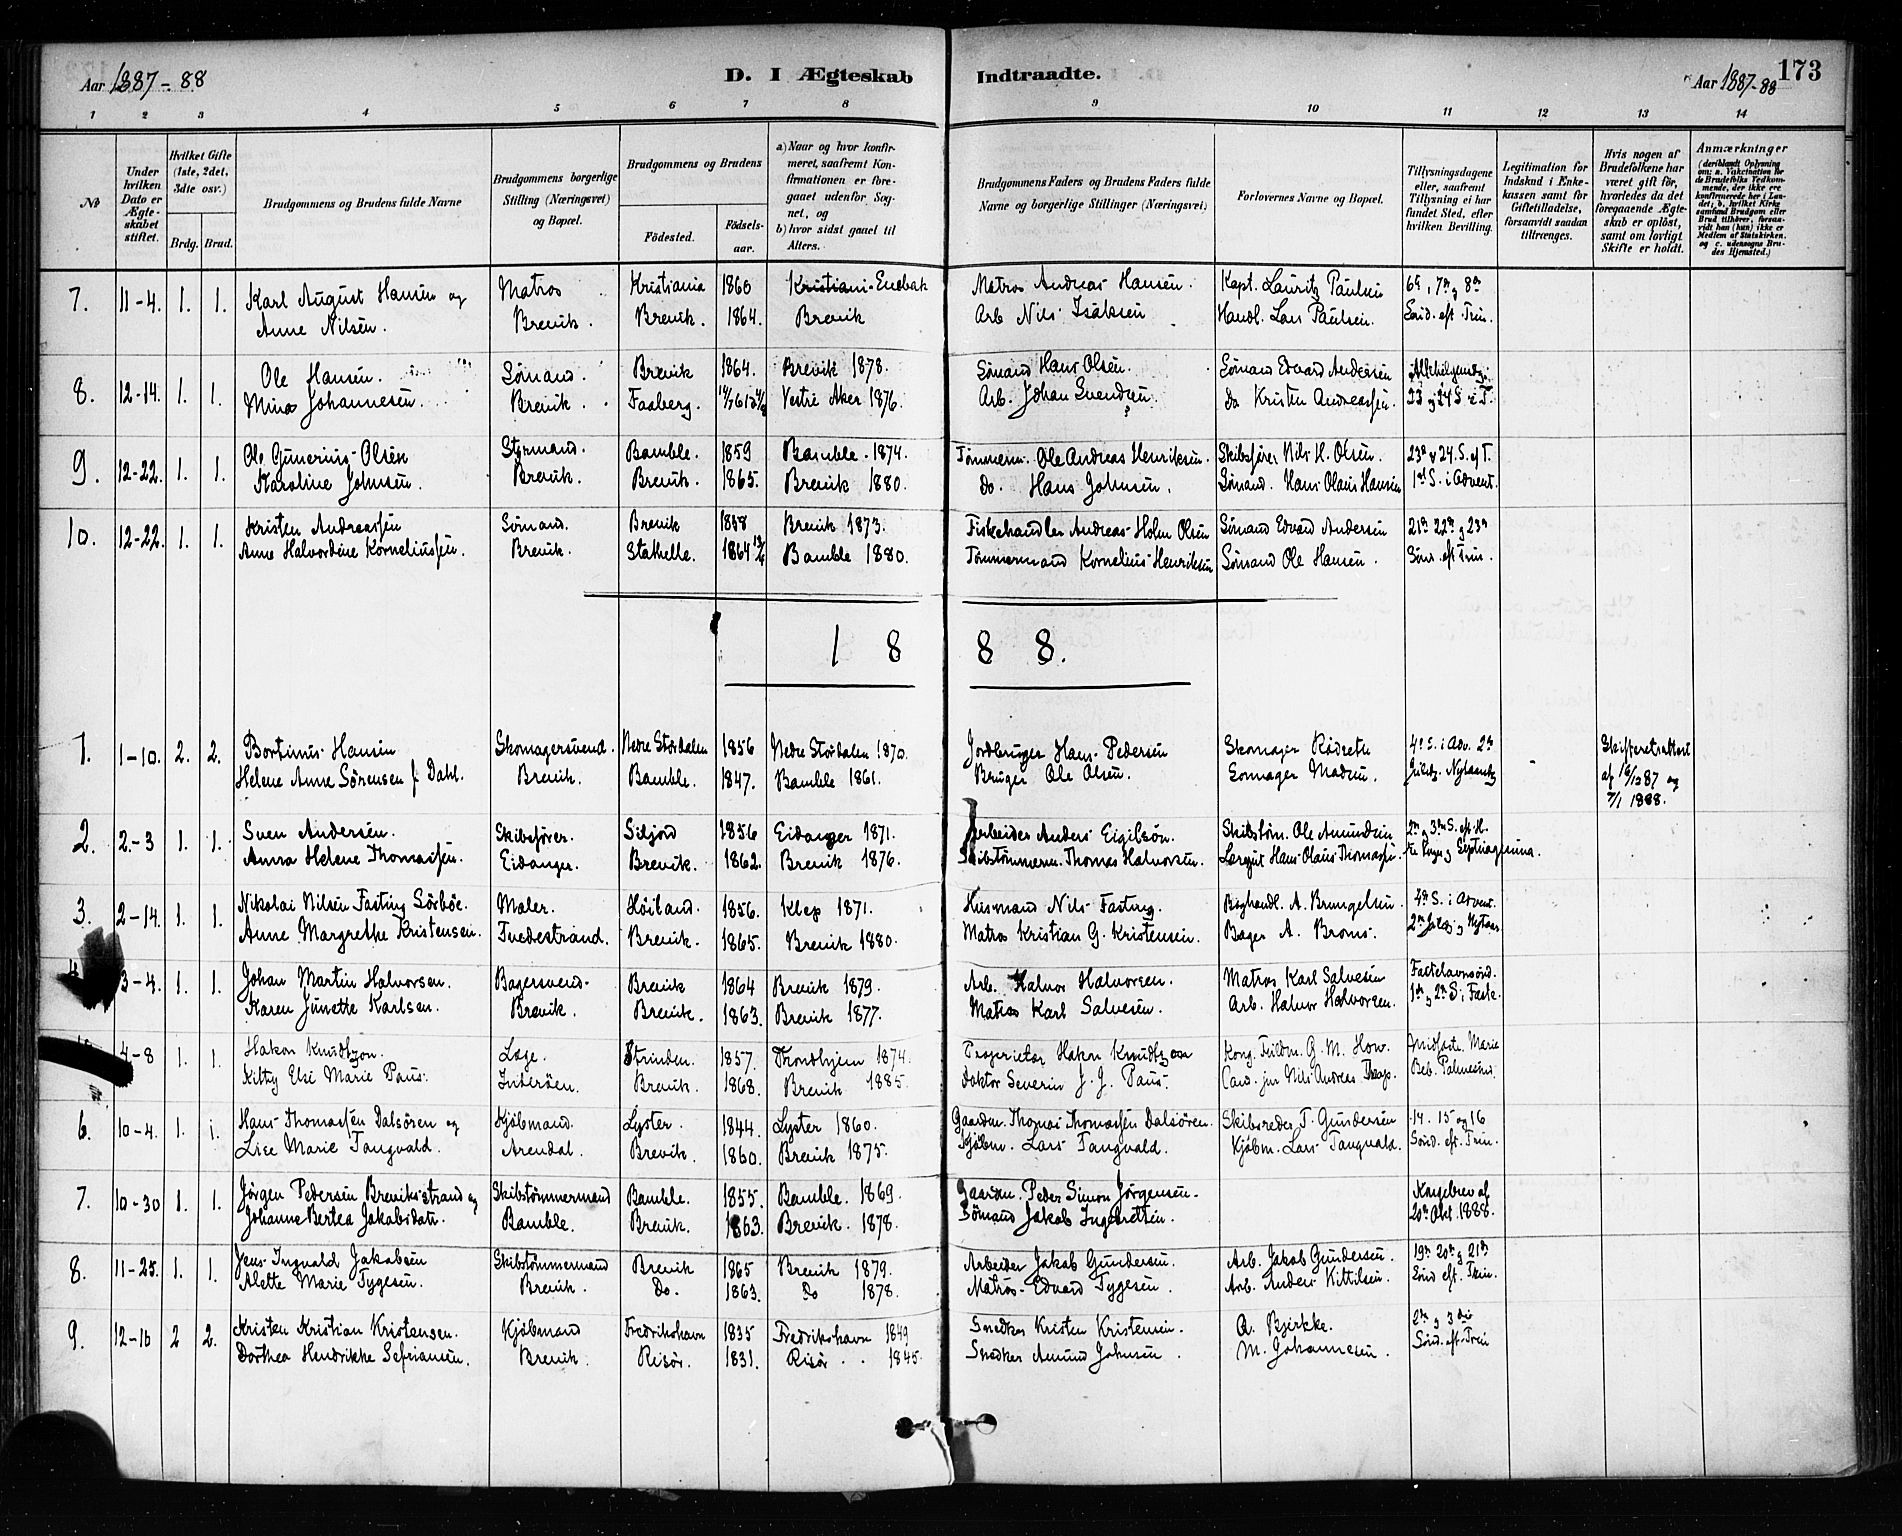 Aar 1887-88
D. I Ægteskab Indtraadte.
Aar 1887-88
173
1 2 3 4 5 6 7 8 9 10 11 12 13 14
No
Under hvilken Dato er Ægteskabet stiftet.
Hvilket Gifte (1ste, 2det, 3die osv.)
Brdg. Brud.
Brudgommens og Brudens fulde Navne
Brudgommens borgerlige Stilling (Næringsvei) og Bopæl.
Brudgommens og Brudens
Födested.
Födselsaar.
a) Naar og hvor konfirmeret, saafremt Konfirmationen er foregaaet udenfor Sognet, og
b) hvor sidst gaaet til Alters.
Brudgommens Faders og Brudens Faders fulde Navne og borgerlige Stillinger (Næringsvei)
Forlovernes Navne og Bopæl.
Tillysningsdagene eller, saafremt Tillysning ei har fundet Sted, efter hvilken Bevilling.
Legitimation for Indskud i Enkekassen samt for Giftetilladelse, forsaavidt saadan tiltrænges.
Hvis nogen af Brudefolkene har været gift för, hvorledes da det foregaaende Ægteskab er oplöst, samt om lovligt Skifte er holdt.
Anmærkninger
(deriblandt Oplysning om: a. Vakcination for de Brudefolks Vedkommende, der ikke ere konfirmerede her i Landet; b. hvilket Kirkesamfund Brudgom eller Brud tilhörer, forsaavidt han (hun) ikke er Medlem af Statskirken, og c. udensogns Brudes Hjemsted.)
7. 11-4. 1. 1. Karl August Hansen og Matros Kristiania 1860 Kristiani-Enebak Matros Andreas Hansen. Kapt. Lauritz Paulsen 6te, 7de og 8de
Anne Nilsen. Brevik. Brevik. 1864. Brevik Arb Nils Isaksen Handl. Lars Paulsen. Sönd. eft. Trin.
8. 12-14. 1. 1. Ole Hansen. Sömand. Brevik 1864. Brevik 1878. Sömand Hans Olsen. Sömand Edvard Andersen
Mina Johannesen. Brevik. Faaberg. Vestre Aker 1876. Arb. Johan Svendsen Do Kristen Andreassen. 23 og 24 S. e. T.
9. 12-22. 1. 1. Ole Gunerius Olsen Styrmand. Bamble. 1859 Bamble. 1874. Tömmerm. Ole Andreas Henriksen. Skibsförer Nils H. Olsen. 23de og 24. S. ef T.
Karoline Johnsen. Brevik. Brevik. 1865. Brevik 1880. Do. Hans Johnsen. Sömand. Hans Olaus Hansen 1ste S. i Advent.
10. 12-22. 1. 1. Kristen Andreassen Sömand. Brevik 1858 Brevik 1873. Fiskehandler Andreas Holm Olsen Sömand Edvard Andersen 21de 22de og 23de
Anne Halvordine Korneliussen. Brevik. Stathelle. 1864 Bamble 1880. Tömmermand Kornelius Henriksen Sömand Ole Hansen. Sönd. eft Trin.
1 8 8 8.
1. 1-10. 2. 2. Bortinus Hansen Skomagersvend. Nedre Stördalen 1856 Nedre Stördalen 1870. Jordbruger Hans Pedersen Skomager Rödseth 4de S. i Adv. 2den Skifteretsattest
Helene Anne Sörensen f. Dahl. Brevik. Bamble. 1847. Bamble 1861. Bruger Ole Olsen. Madsen. Juledg. Nytaarsdg af 16/12 87 og
7/1 1888.
2. 2-3 1. 1. Sven Andersen. Skibsförer. Siljord 1856 Eidanger 1871. Arbeider Anders Eigilsön. Skibstöm. Ole Amundsen 2den og 3die S. eft. H.
Anna Helene Thomassen. Eidanger. Brevik. 1862. Brevik 1876. Skibstömmerm. Thomas Halvorsen. Hans Olaus Thomassen. Septuagesima.
3. 2-14. 1. 1. Nikolai Nilsen Fasting Sörböe. Maler. Höiland. 1856. Klep 1871. Husmand Nils Fasting. Boghandl. A. Brungelsen. 4de S. i Advent.
Anne Margrethe Kristensen. Tvedestrand. Brevik. 1865. Brevik 1880. Matros Kristian G. Kristensen. Bager A. Broms. 2den Juledg og Nytaar
3-4. 1. 1. Johan Martin Halvorsen. Bagersvend. Brevik 1864 Brevik 1879. Arb. Halvor Halvorsen. Matros Karl Salvesen Fastelavnsönd.
Karen Junette Karlsen. Brevik. Brevik. 1863. Brevik 1877. Matros Karl Salvesen. Arb. Halvor Halvorsen. 1ste og 2den S. i Faste.
4-8 1. 1. Hakon Knudtzon. Læge. Strinden. 1857. Trondhjem 1874. Proprietær Hakon Knudtzon G. M. How. Midfaste. Marie
Kitty Elsi Marie Paus. Inderöen. Brevik. 1868. Brevik 1885. Doktor Severin J. J. Paus. Cand. jur Nils Andreas Beb. Palmesönd.
6. 10-4. 1. 1. Hans Thomassen Dalsören og Kjöbmand. Lyster. 1844. Lyster 1860. Gaardm. Thomas Thomassen Dalsören. Skibsreder T. Gundersen 14. 15 og 16
Lise Marie Tangvald. Arendal. Brevik. 1860. Brevik 1875. Kjöbm. Lars Tangvald. Kjöbm. Lars Tangvald. Sönd. eft. Trin.
7. 10-30 1. 1. Jörgen Pedersen Breviksstrand og Skibstömmermand Bamble. 1855. Bamble. 1869. Gaardm. Peder Simon Jörgensen. Kongebrev af
Johanne Bertea Jakobsdatr. Bamble. Brevik. 1863. Brevik. 1878. Sömand Jakob Ingebretsen. 20de Okt. 1888.
8. 11-25. 1. 1. Jens Ingvald Jakobsen Skibstömmermand Brevik 1865 Brevik 1879. Arbeider Jakob Gundersen. Arb. Jakob Gundersen. 19de 20de og 21de
Alette Marie Tygesen. Brevik. Do. 1863. Do 1878. Matros Edvard Tygesen. Arb. Anders Kittilsen. Sönd eft. Trin.
9. 12-16 2 2. Kristen Kristian Kristensen. Kjöbmand Fredrikshavn 1835 Fredrikshavn 1849 Snedker Kristen Kristensen. A. Bjerkke. 2den og 3die
Dorthea Hendrikke Sefriansen. Brevik. Risör. 1831. Risör 1845. Snedker Amund Johnsen. M. Johannesen. Sönd. eft. Trin